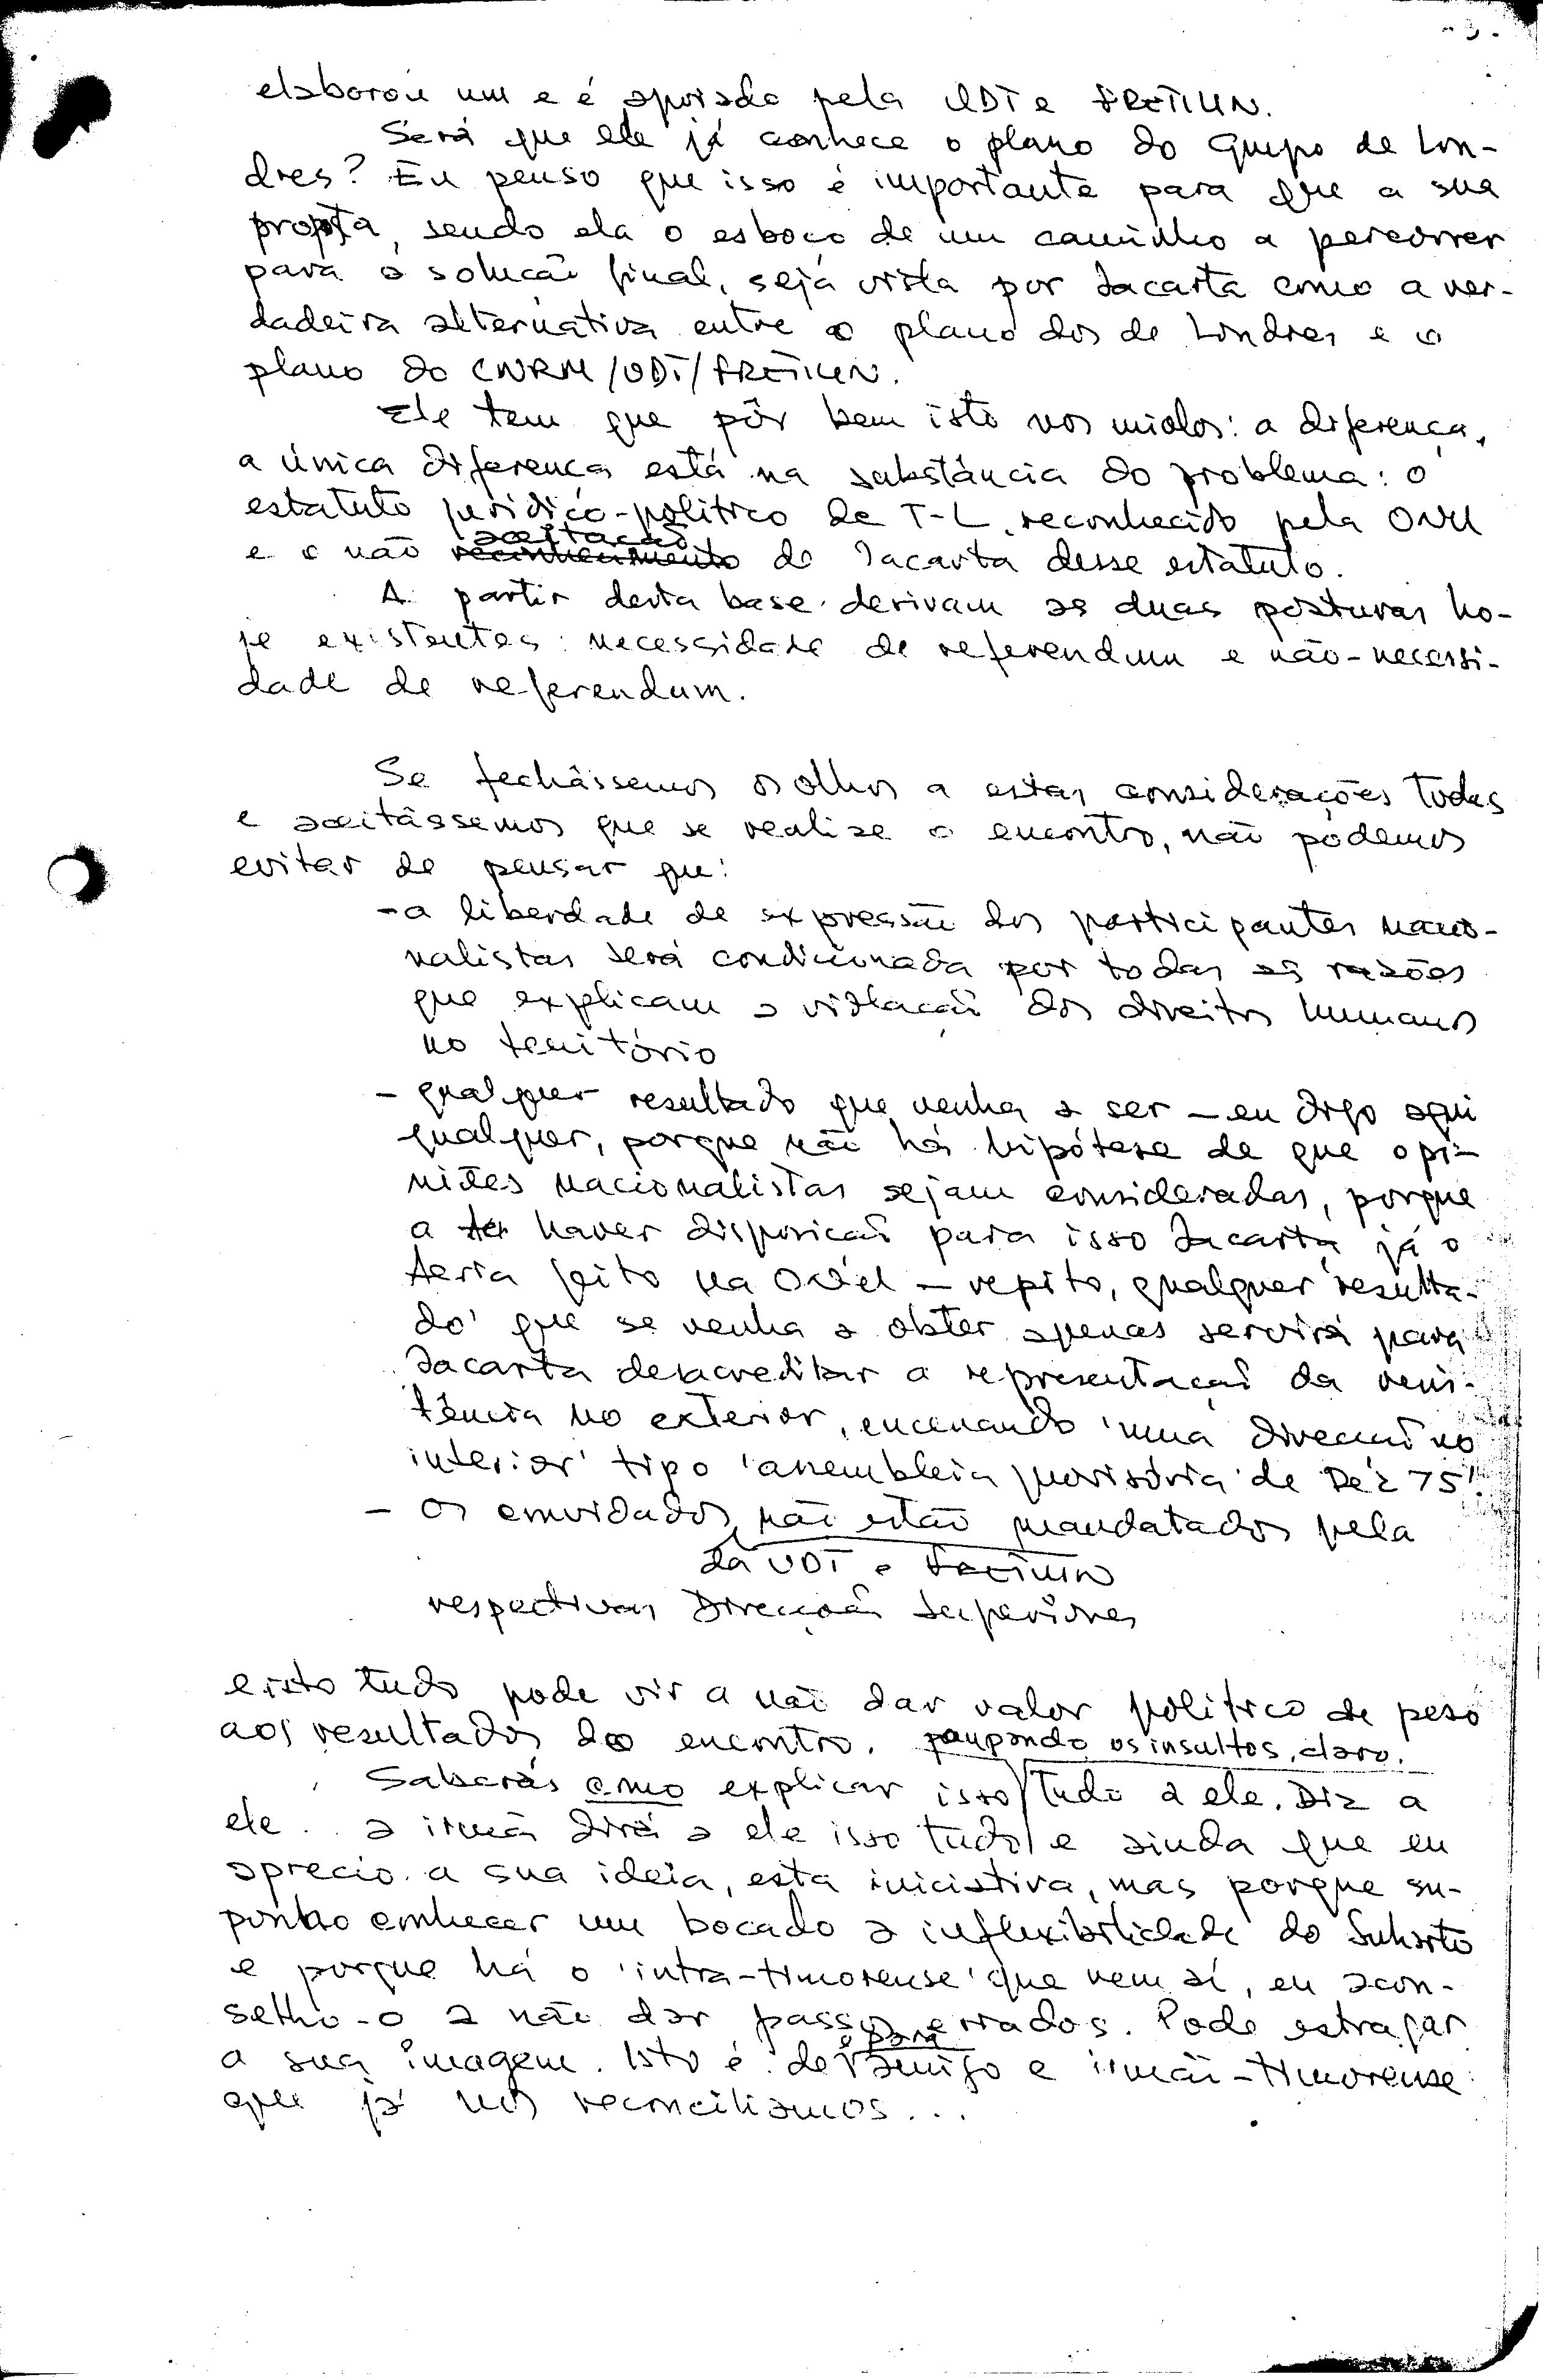 - 3 -
elaborou um e é apoiado pela UDT e FRETILIN.
Será que ele já conhece o plano do Grupo de Lon-
dres? Eu penso que isso é importante para que a sua
propta, sendo ela o esboço de um caminho a percorrer
para a solução final, seja vista por Jacarta como a ver-
dadeira alternativa entre o plano dos de Londres e o
plano do CNRM/UDT/FRETILIN.
Ele tem que pôr bem isto nos miolos: a diferença,
a única diferença está na substância do problema: o
estatuto jurídico-político de T-L, reconhecido pela ONU
aceitação
e o não reconhecimento de Jacarta desse estatuto.
A partir desta base derivam as duas posturas ho-
je existentes: necessidade de referendum e não-necessi-
dade de referendum.
Se fechássemos os olhos a estas considerações todas
e aceitássemos que se realize o encontro, não podemos
evitar de pensar que:
- a liberdade de expressão dos participantes nacio-
nalistas será condicionada por todas as razões
que explicam a violação dos direitos humanos
no território
- qualquer resultado que venha a ser — eu digo aqui
qualquer, porque não há hipótese de que opi-
niões nacionalistas sejam consideradas, porque
a haver disposição para isso Jacarta já o
teria feito na ONU — repito, qualquer resulta-
do que se venha a obter apenas servirá para
Jacarta desacreditar a representação da resis-
tência no exterior, encenando 'uma direcção no
interior' tipo 'assembleia provisória de Dez 75'.
- Os convidados não estão mandatados pela
da UDT e FRETILIN
respectivas Direcções Superiores
e isto tudo pode vir a não dar valor político de peso
aos resultados do encontro.
poupando os insultos, claro.
Saberás como explicar isso tudo a ele. Diz a
ele.. a irmã dirá a ele isso tudo e ainda que eu
aprecio a sua ideia, esta iniciativa, mas porque su-
ponho conhecer um bocado a inflexibilidade do Suharto
e porque há o 'intra-timorense' que vem aí, eu acon-
selho-o a não dar passos errados. Pode estragar
e para
a sua imagem. Isto é de amigo e irmão-timorense
que já nos reconciliamos...